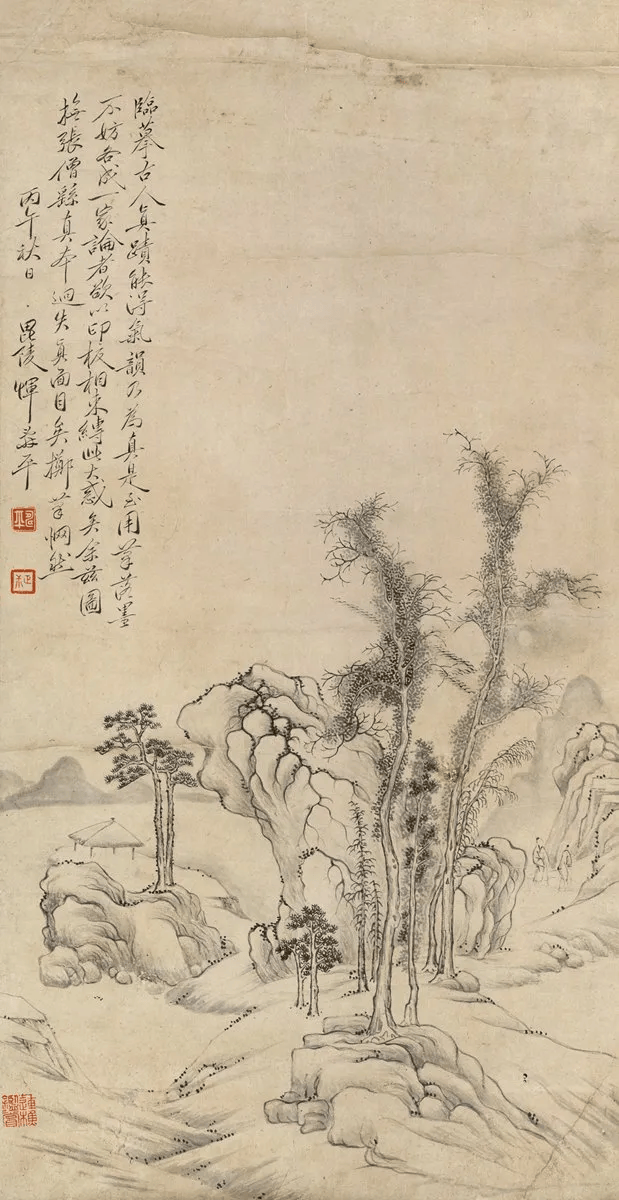 臨摹古人真蹟能得氣韻乃為真是至用筆落墨
不妨各成一家論者欲以印板相束縛此大惑矣余茲圖
撫張僧繇真本迥失真面目矣擲筆惘然
丙午秋日 毘陵惲壽平